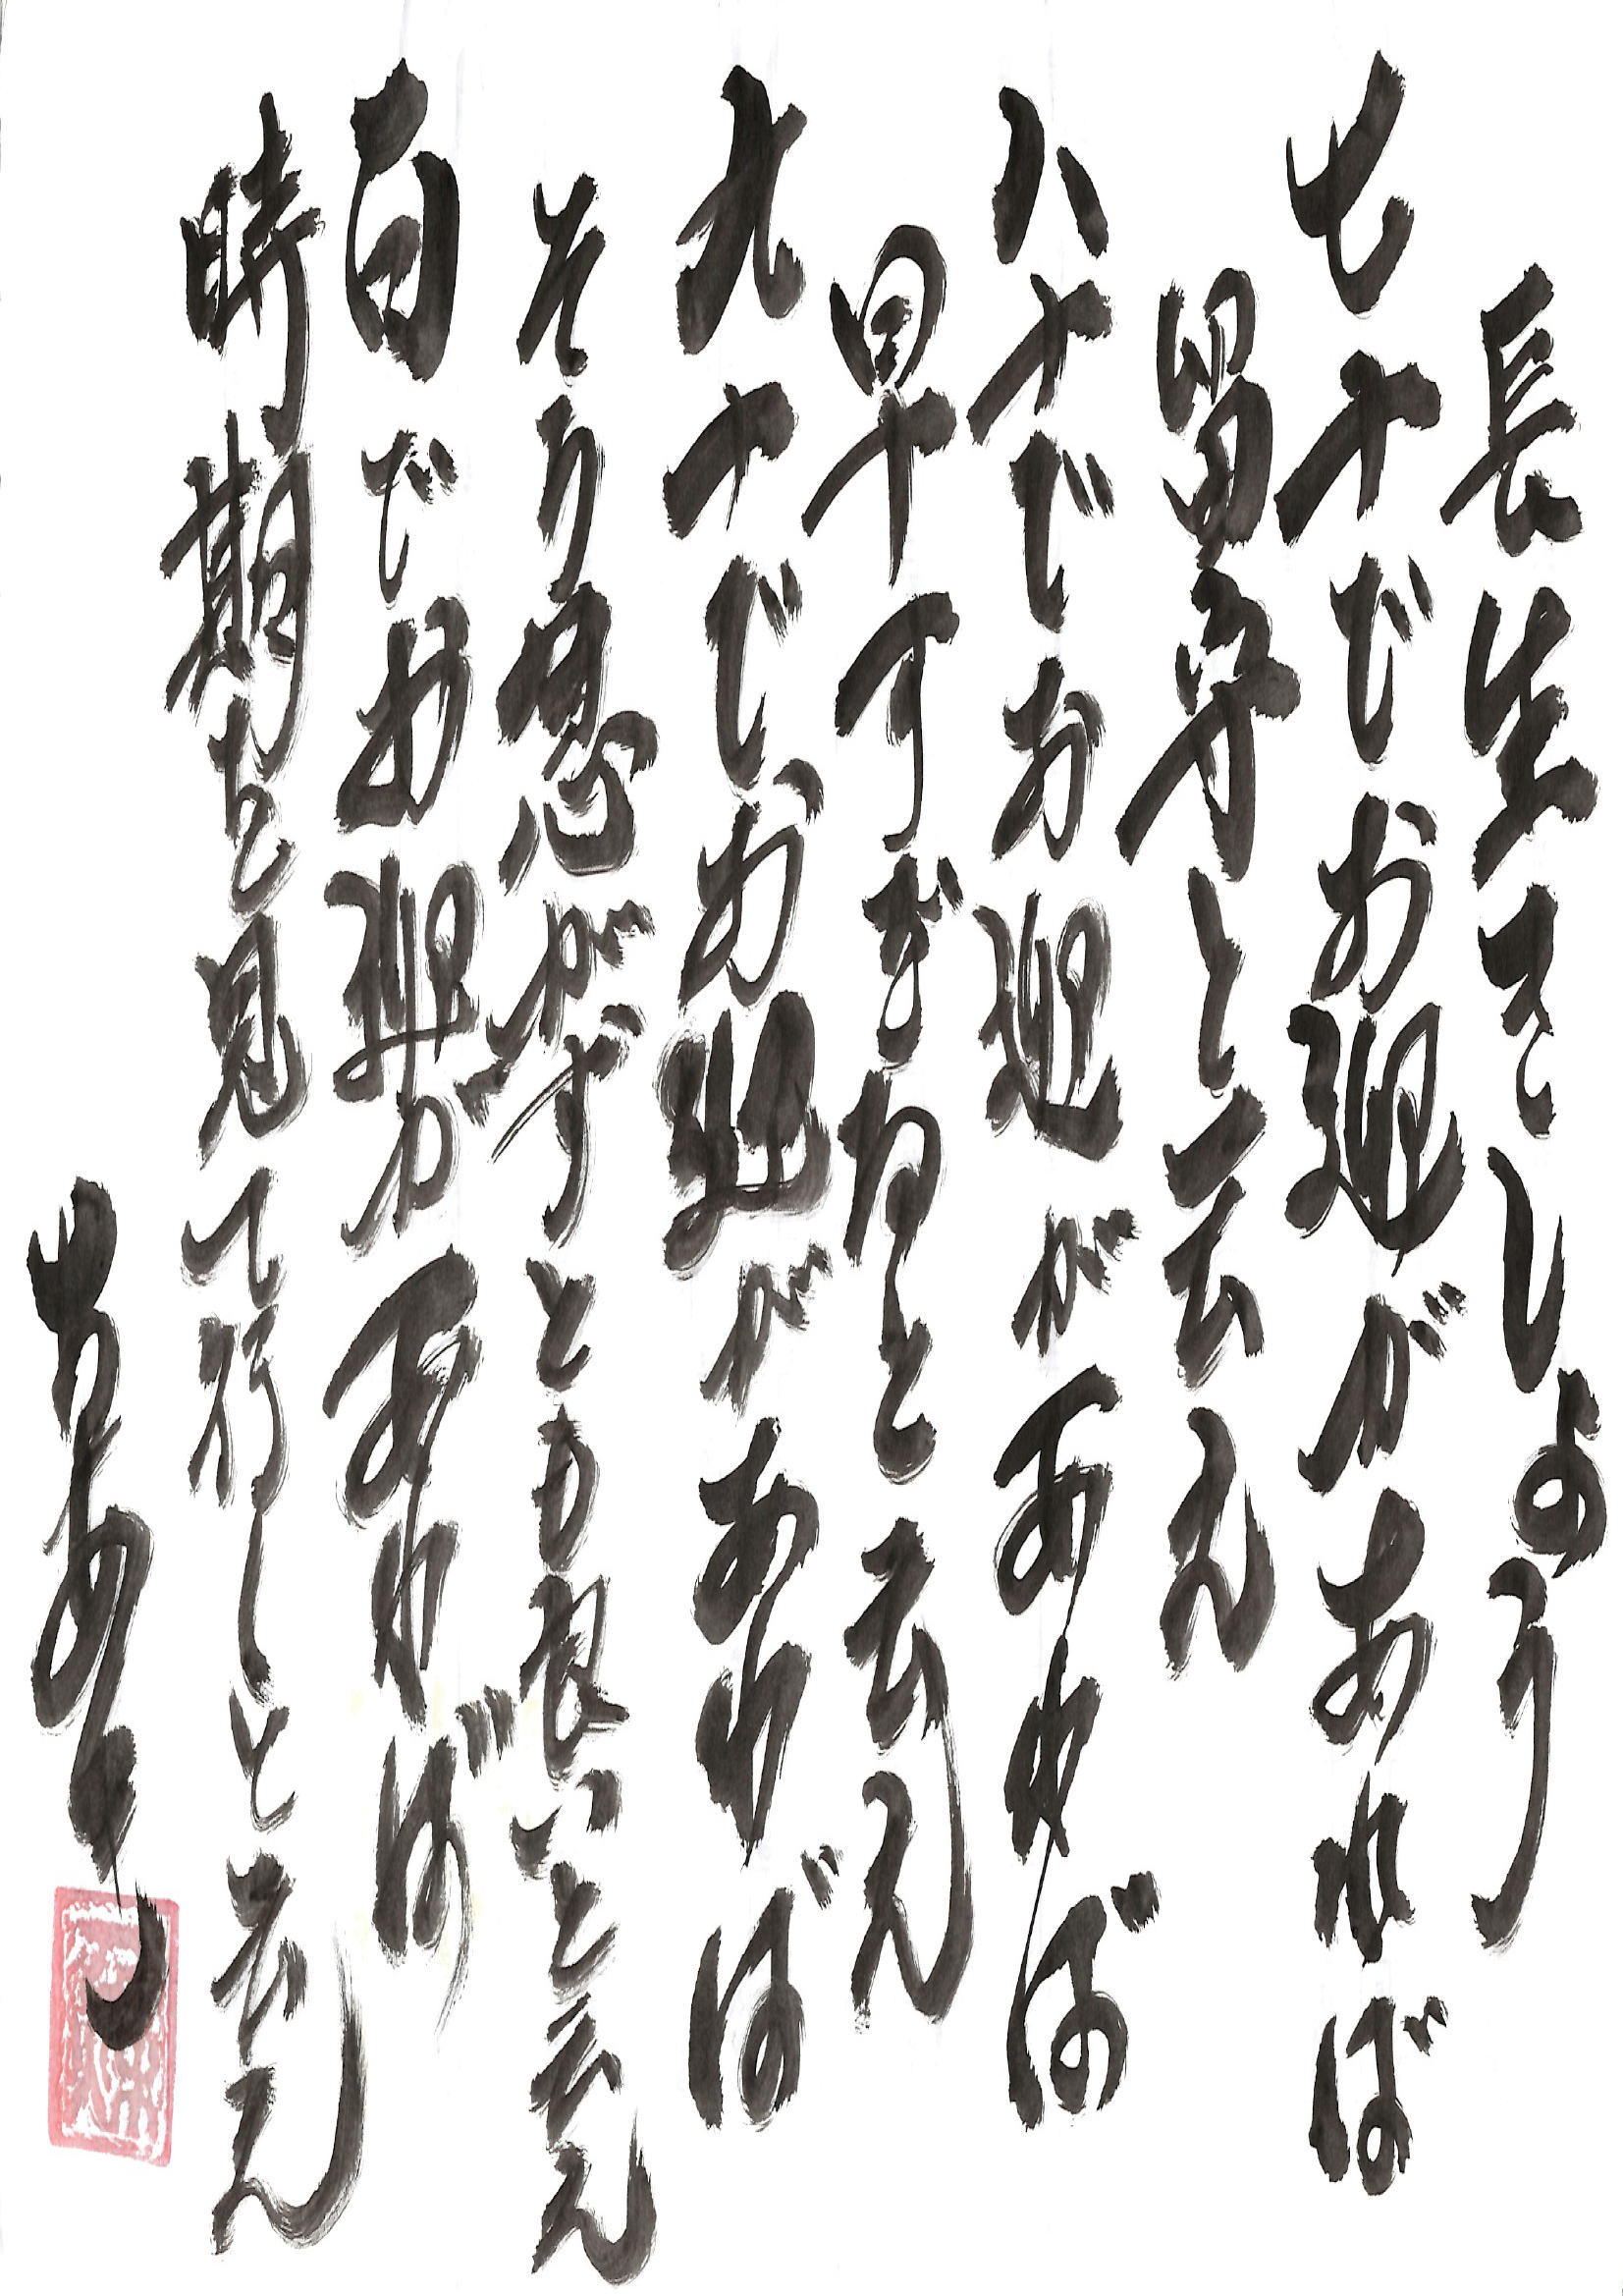 長生きしょう
七十でお迎があれば
留守と云え
八十でお迎があれば
早すぎねと云え
九十でお迎があれば
そう急がずとも良いと云え
百でお迎があれば
時期を見て行しと云え